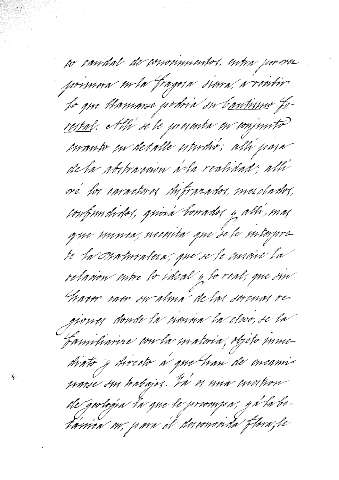 co caudal de conocimientos, entra por vez
primera en la fragosa sierra, a recibir
lo que llamarse podria su bautismo fo-
restal. Allí se le presenta en conjunto
cuanto en detalle estudió; allí pasa
de la abstraccion á la realidad; allí
vé los caracteres disfrazados, mezclados,
confundidos, quizá borrados y allí, mas
que nunca, necesita que se le interpre-
te la naturaleza, que se le enseñe la
relacion entre lo ideal y lo real, que sin
hacer caer su alma de las serenas re-
giones donde la ciencia la elevó, se la
familiarice con la materia, objeto inme-
diato y directo á que han de encami-
narse sus trabajos. Yá es una cuestion
de geología la que le preocupa, yá la bo-
tánica en, para él desconocida flora, le